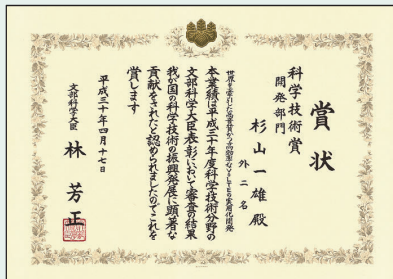 賞状
科学技術賞
開発部門
杉山一雄殿
外二名
本業績は平成三十年度科学技術分野の
文部科学大臣表彰において審査の結果
我が国の科学技術の振興発展に顕著な
貢献をされたと認められましたのでこれを
賞します
平成三十年四月十七日
文部科学大臣
林芳正